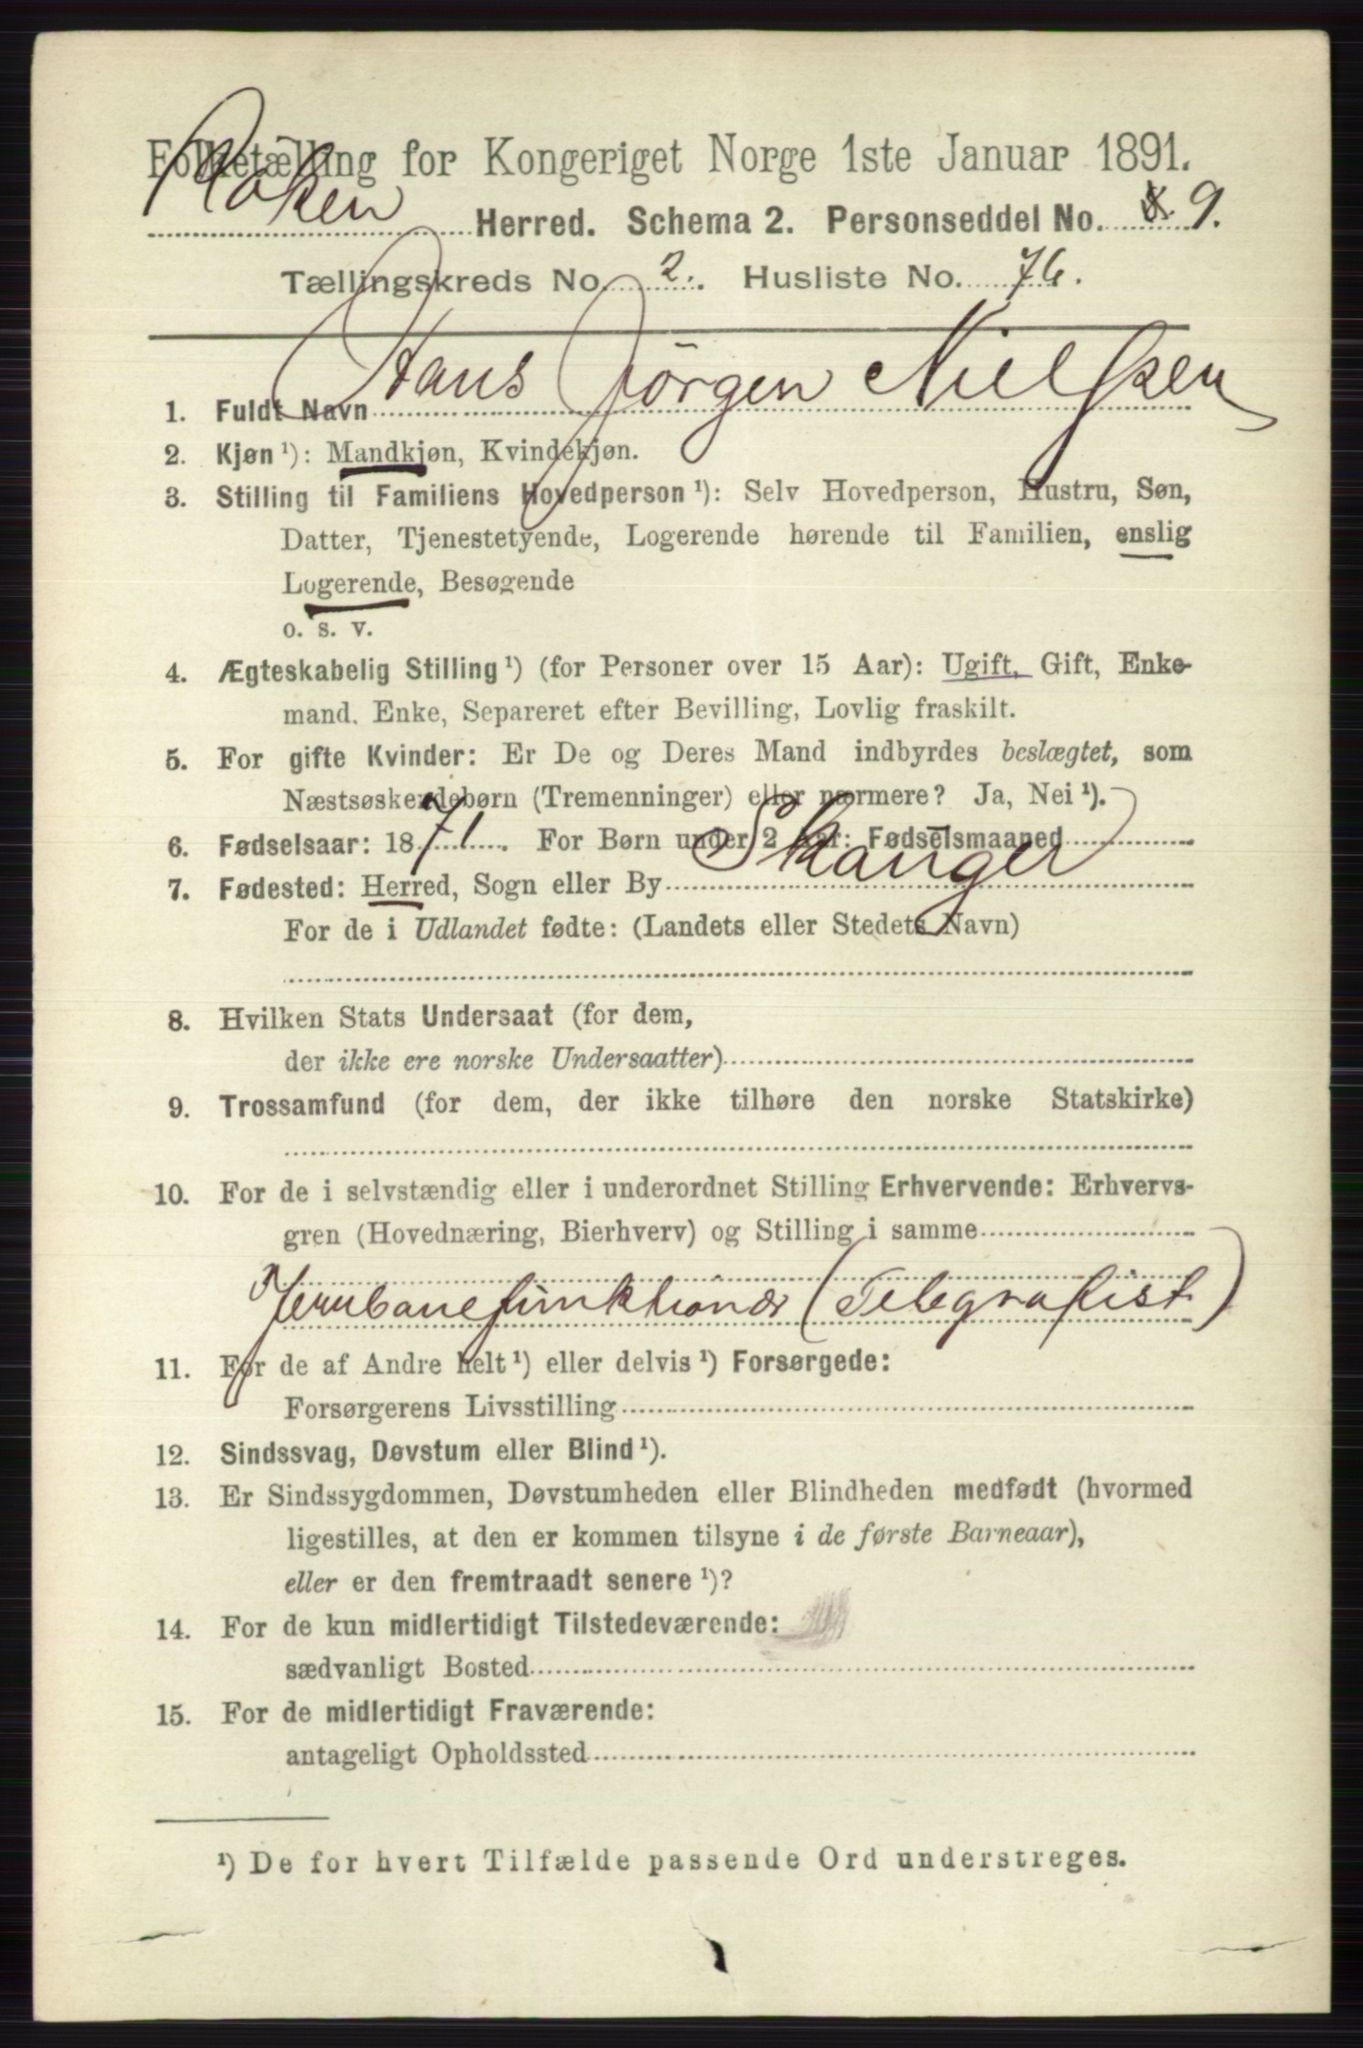 Folketælling for Kongeriget Norge 1ste Januar 1891.
Røken Herred. Schema 2. Personseddel No. 9.
Tællingskreds No. 2. Husliste No. 76.
1. Fuldt Navn Hans Jörgen Nielsen
2. Kjøn ¹): Mandkjøn, Kvindekjøn.
3. Stilling til Familiens Hovedperson ¹): Selv Hovedperson, Hustru, Søn,
Datter, Tjenestetyende, Logerende hørende til Familien, enslig
Logerende, Besøgende
o. s. v.
4. Ægteskabelig Stilling ¹) (for Personer over 15 Aar): Ugift, Gift, Enke-
mand, Enke, Separeret efter Bevilling, Lovlig fraskilt.
5. For gifte Kvinder: Er De og Deres Mand indbyrdes beslægtet, som
Næstsøskendebørn (Tremenninger) eller nærmere? Ja, Nei ¹).
6. Fødselsaar: 1871. For Børn under 2 Aar: Fødselsmaaned
7. Fødested: Herred, Sogn eller By Skauger
For de i Udlandet fødte: (Landets eller Stedets Navn)
8. Hvilken Stats Undersaat (for dem,
der ikke ere norske Undersaatter)
9. Trossamfund (for dem, der ikke tilhøre den norske Statskirke)
10. For de i selvstændig eller i underordnet Stilling Erhvervende: Erhvervs-
gren (Hovednæring, Bierhverv) og Stilling i samme
Jernbanefunktionær (Telegrafist)
11. For de af Andre helt ¹) eller delvis ¹) Forsørgede:
Forsørgerens Livsstilling
12. Sindssvag, Døvstum eller Blind ¹).
13. Er Sindssygdommen, Døvstumheden eller Blindheden medfødt (hvormed
ligestilles, at den er kommen tilsyne i de første Barneaar),
eller er den fremtraadt senere ¹)?
14. For de kun midlertidigt Tilstedeværende:
sædvanligt Bosted
15. For de midlertidigt Fraværende:
antageligt Opholdssted
¹) De for hvert Tilfælde passende Ord understreges.